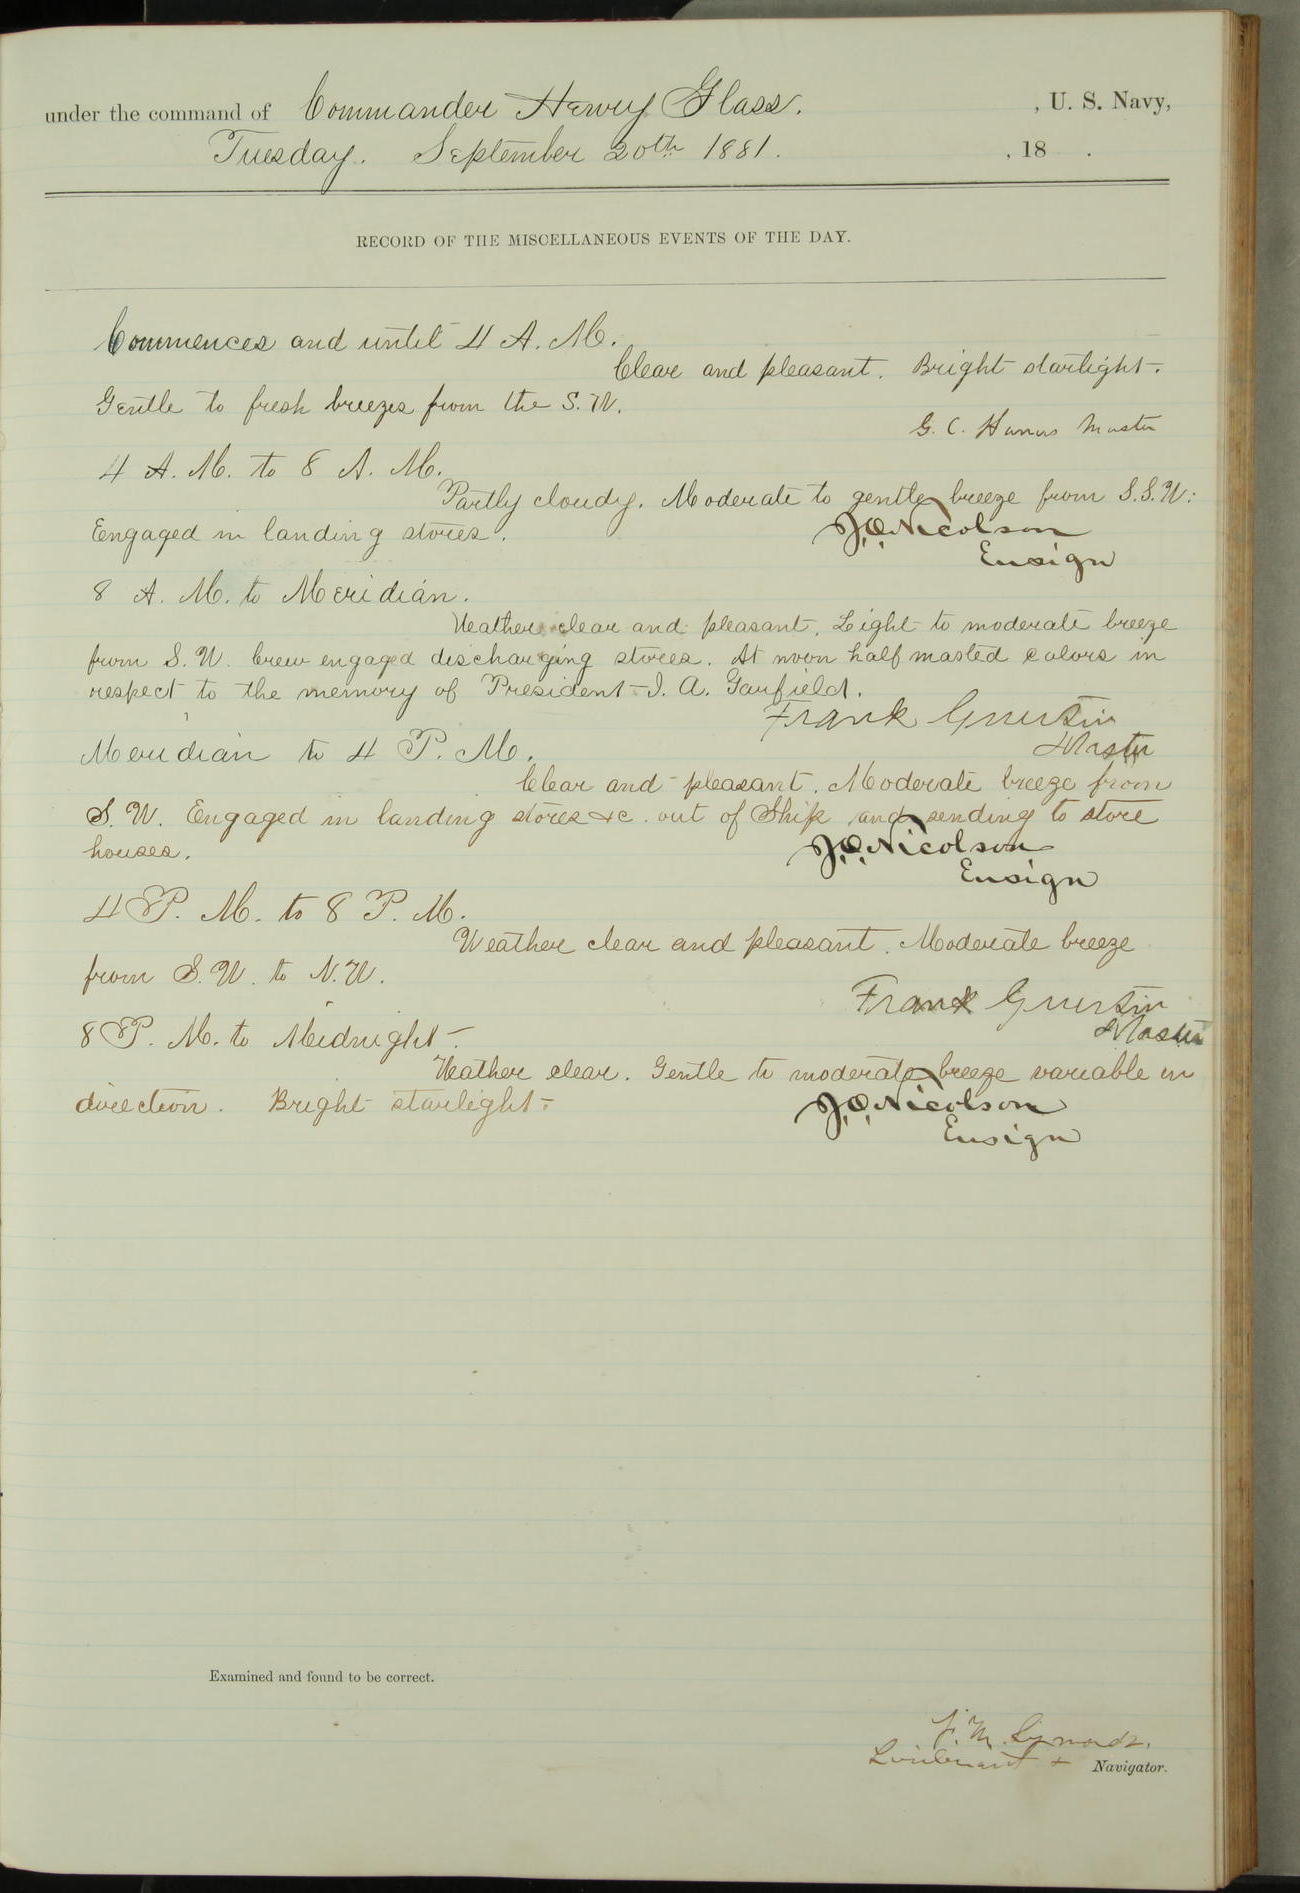 under the command of Commander Henry Glass. , U. S. Navy,
Tuesday. September 20th 1881. , 18 .
RECORD OF THE MISCELLANEOUS EVENTS OF THE DAY.
Commences and until 4 A. M.
Clear and pleasant. Bright starlight.
Gentle to fresh breezes from the S. W.
G. C. Hanus Master
4 A. M. to 8 A. M.
Partly cloudy. Moderate to gentle breeze from S.S.W:
Engaged in landing stores.
J.O. Nicolson
Ensign
8 A. M. to Meridian.
Weather clear and pleasant. Light to moderate breeze
from S. W. Crew engaged discharging stores. At noon half masted colors in
respect to the memory of President J. A. Garfield.
Frank
Master
Meridian to 4 P. M.
Clear and pleasant. Moderate breeze from
S. W. Engaged in landing stores &c. out of Ship and sending to store
houses.
J.O. Nicolson
Ensign
4 P. M. to 8 P. M.
Weather clear and pleasant. Moderate breeze
from S. W. to N. W.
Frank
Master
8 P. M. to Midnight
Weather clear. Gentle to moderate breeze variable in
direction. Bright starlight.
J.O. Nicolson
Ensign
Examined and found to be correct.
F. M. Symonds.
Lieutenant & Navigator.